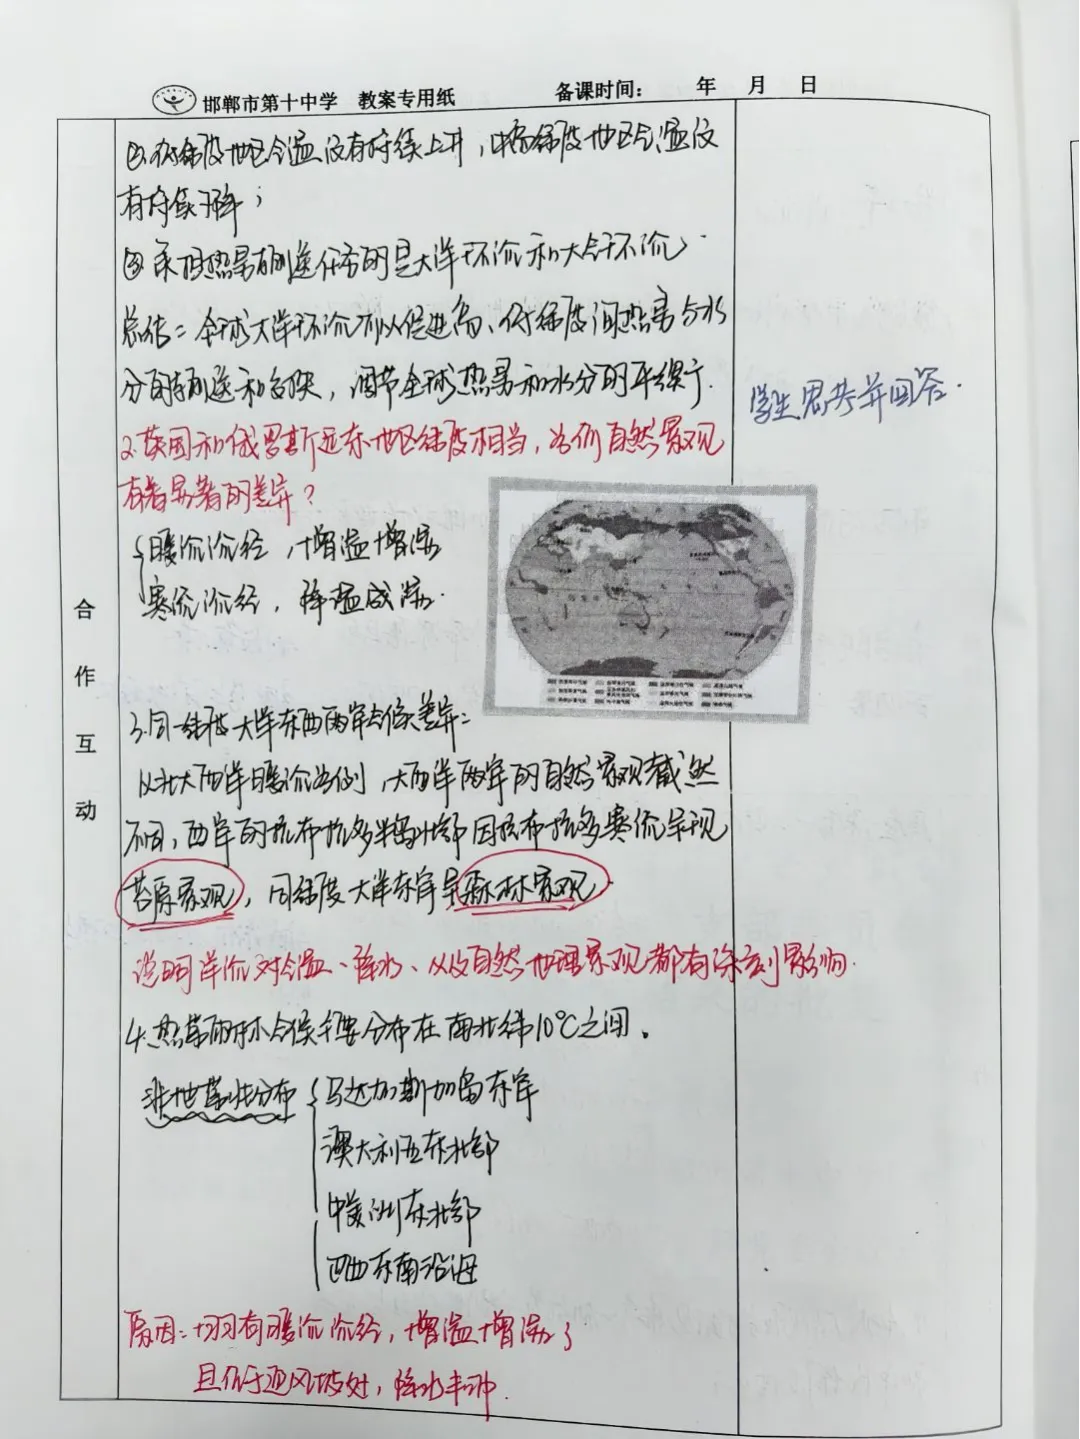 邯郸市第十中学 教案专用纸 备课时间： 年 月 日
②低纬度地区气温没有持续上升，中高纬度地区气温没
有持续下降；
③承担热量输送任务的是大洋环流和大气环流.
总结：全球大洋环流可以促进高、低纬度间热量与水
分的输送和交换，调节全球热量和水分的平衡.
学生思考并回答.
2.英国和俄罗斯远东地区纬度相当，为何自然景观
有着显著的差异？
暖流流经，增温增湿
寒流流经，降温减湿.
合作互动
3.同一纬度大洋东西两岸气候差异：
以北大西洋暖流为例，大西洋两岸的自然景观截然
不同，西岸的拉布拉多半岛北部因拉布拉多寒流呈现
苔原景观，同纬度大洋东岸呈森林景观.
说明洋流对气温、降水、以及自然地理景观都有深刻影响.
4.热带雨林气候主要分布在南北纬10℃之间.
非地带性分布
马达加斯加岛东岸
澳大利亚东北部
中美洲东北部
巴西东南沿海
原因：均有暖流流经，增温增湿；
且位于迎风坡处，降水丰沛.